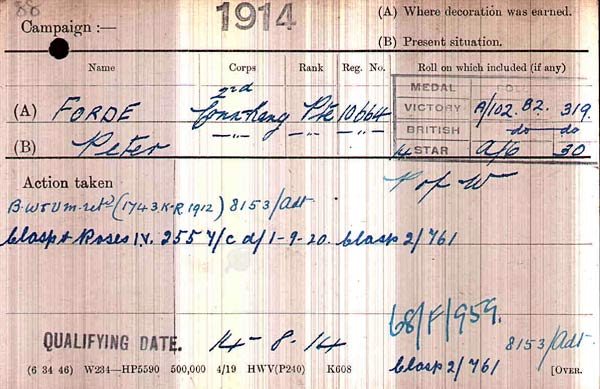 88
Campaign :— 1914
(A) Where decoration was earned.
(B) Present situation.
Name Corps Rank Reg. No. Roll on which included (if any)
MEDAL ROLL
(A) FORDE 2nd Conn Rang Pte 10664 VICTORY A/102. B2. 319.
(B) Peter —„— —„— —„— BRITISH do do
14 STAR A/6 30
Action taken P of W
B.W & V m. retd (1743 K-R 1912) 8153/Adt
Clasp & Roses IV. 255 Y/c d/1-9-20. Clasp 2/761
68/F/959.
QUALIFYING DATE. 14-8-14 8153/Adt
Clasp 2/761
(6 34 46) W234—HP5590 500,000 4/19 HWV(P240) K608 [OVER.